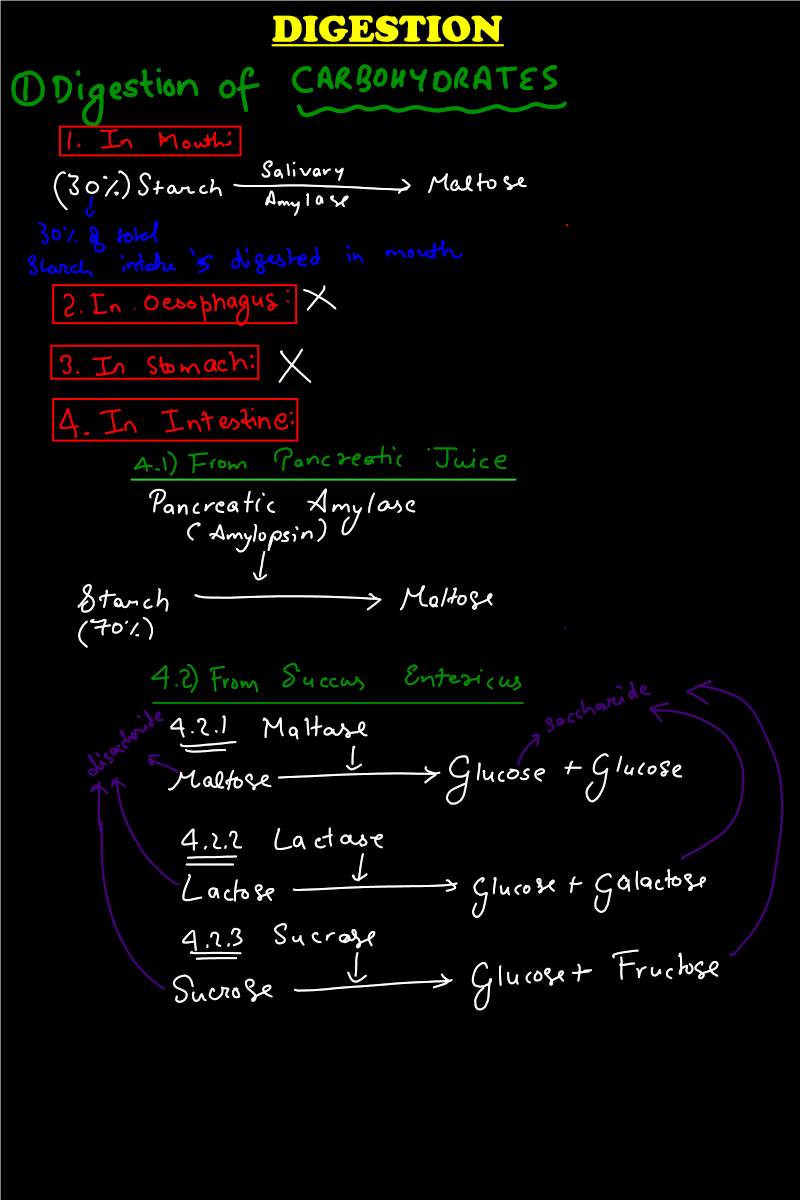 DIGESTION
① Digestion of CARBOHYDRATES
1. In Mouth:
(30%) Starch Salivary Amylase → Maltose
30% of total
Starch intake is digested in mouth
2. In Oesophagus: X
3. In Stomach: X
4. In Intestine:
4.1) From Pancreatic Juice
Pancreatic Amylase
(Amylopsin)
Starch → Maltose
(70%)
4.2) From Succus Entericus
saccharide
4.2.1 Maltase
Maltose → Glucose + Glucose
4.2.2 Lactase
Lactose → Glucose + Galactose
4.2.3 Sucrase
Sucrose → Glucose + Fructose